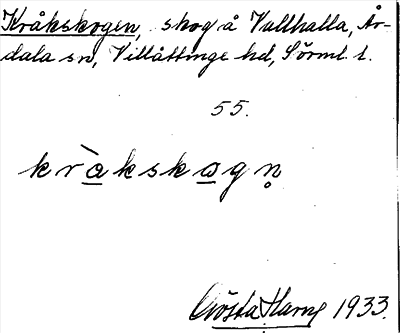 Kråkskogen, skog å Vallhalla, År-
dala sn, Villåttinge hd, Sörml. l.
55.
kràkskogn̥
Gösta Harne 1933.